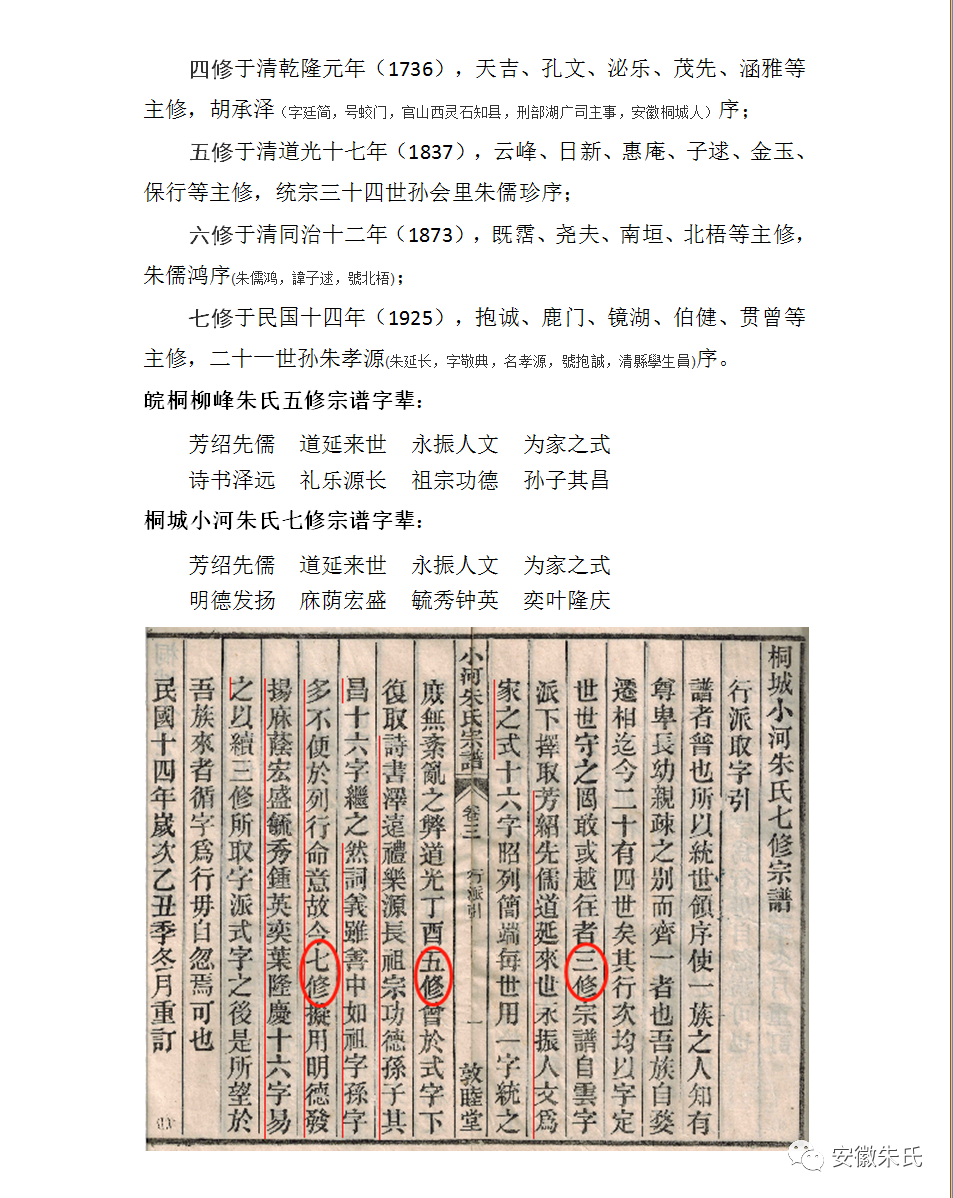 四修于清乾隆元年（1736），天吉、孔文、泌乐、茂先、涵雅等
主修，胡承泽（字廷简，号蛟门，官山西灵石知县，刑部湖广司主事，安徽桐城人）序；
五修于清道光十七年（1837），云峰、日新、惠庵、子逑、金玉、
保行等主修，统宗三十四世孙会里朱儒珍序；
六修于清同治十二年（1873），既霑、尧夫、南垣、北梧等主修，
朱儒鸿序(朱儒鸿，諱子逑，號北梧)；
七修于民国十四年（1925），抱诚、鹿门、镜湖、伯健、贯曾等
主修，二十一世孙朱孝源(朱延长，字敬典，名孝源，號抱誠，清縣學生員)序。
皖桐柳峰朱氏五修宗谱字辈：
芳绍先儒 道延来世 永振人文 为家之式
诗书泽远 礼乐源长 祖宗功德 孙子其昌
桐城小河朱氏七修宗谱字辈：
芳绍先儒 道延来世 永振人文 为家之式
明德发扬 庥荫宏盛 毓秀钟英 奕叶隆庆
桐城小河朱氏七修宗譜
行派取字引
譜者普也所以統世領序使一族之人知有
尊卑長幼親疎之别而齊一者也吾族自婺
遷桐迄今二十有四世矣其行次均以字定
世世守之罔敢或越徃者三修宗譜自雲字
派下擇取芳紹先儒道延來世永振人文爲
家之式十六字昭列簡端每世用一字統之
小河朱氏宗譜 卷三 行派引 一 敦睦堂
庶無紊亂之弊道光丁酉五修曾於式字下
復取詩書澤遠禮樂源長祖宗功德孫子其
昌十六字繼之然詞義雖善中如祖字孫字
多不便於列行命意故今七修擬用明德發
揚庥蔭宏盛毓秀鍾英奕葉隆慶十六字易
之以續三修所取字派式字之後是所望於
吾族來者循字爲行毋自忽焉可也
民國十四年歲次乙丑季冬月重訂
安徽朱氏